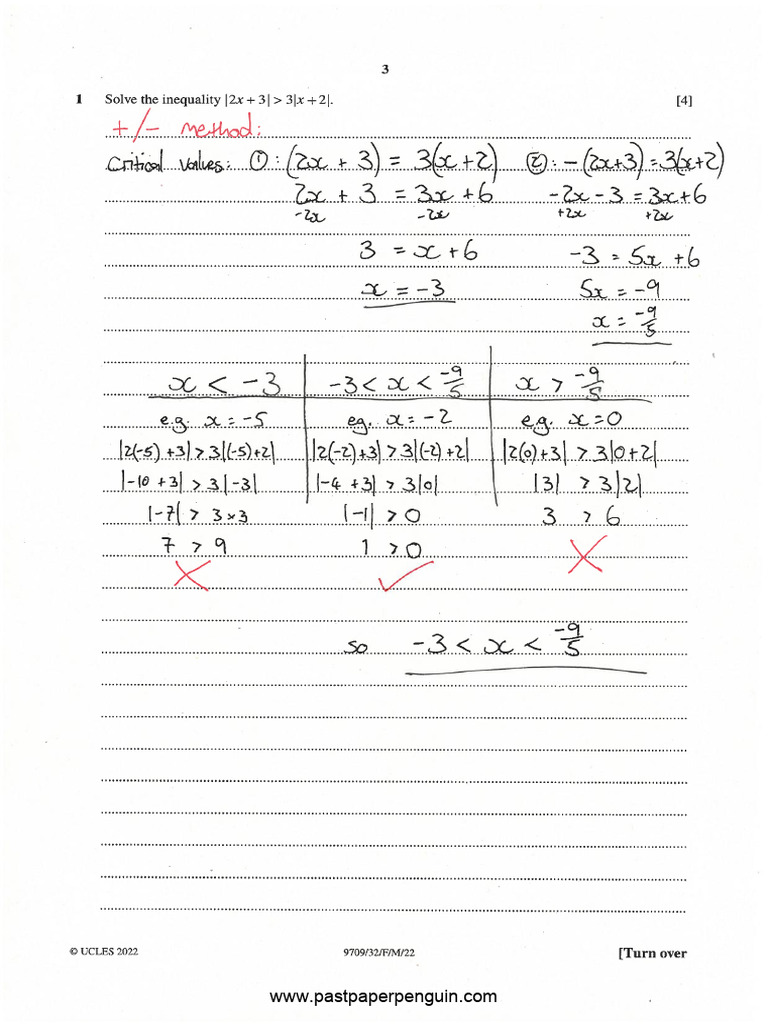 3
1 Solve the inequality |2x + 3| > 3|x + 2|. [4]
+/- method:
Critical Values: ①: (2x + 3) = 3(x+2) ②: -(2x+3) = 3(x+2)
2x + 3 = 3x + 6 -2x - 3 = 3x + 6
-2x -2x +2x +2x
3 = x + 6 -3 = 5x + 6
x = -3 5x = -9
x = -9/5
x < -3 -3 < x < -9/5 x > -9/5
e.g. x = -5 eg. x = -2 e.g. x = 0
|2(-5) + 3| > 3|(-5)+2| |2(-2)+3| > 3|(-2)+2| |2(0)+3| > 3|0+2|
|-10 + 3| > 3|-3| |-4 + 3| > 3|0| |3| > 3|2|
|-7| > 3 × 3 |-1| > 0 3 > 6
7 > 9 1 > 0
so -3 < x < -9/5
© UCLES 2022 9709/32/F/M/22 [Turn over
www.pastpaperpenguin.com